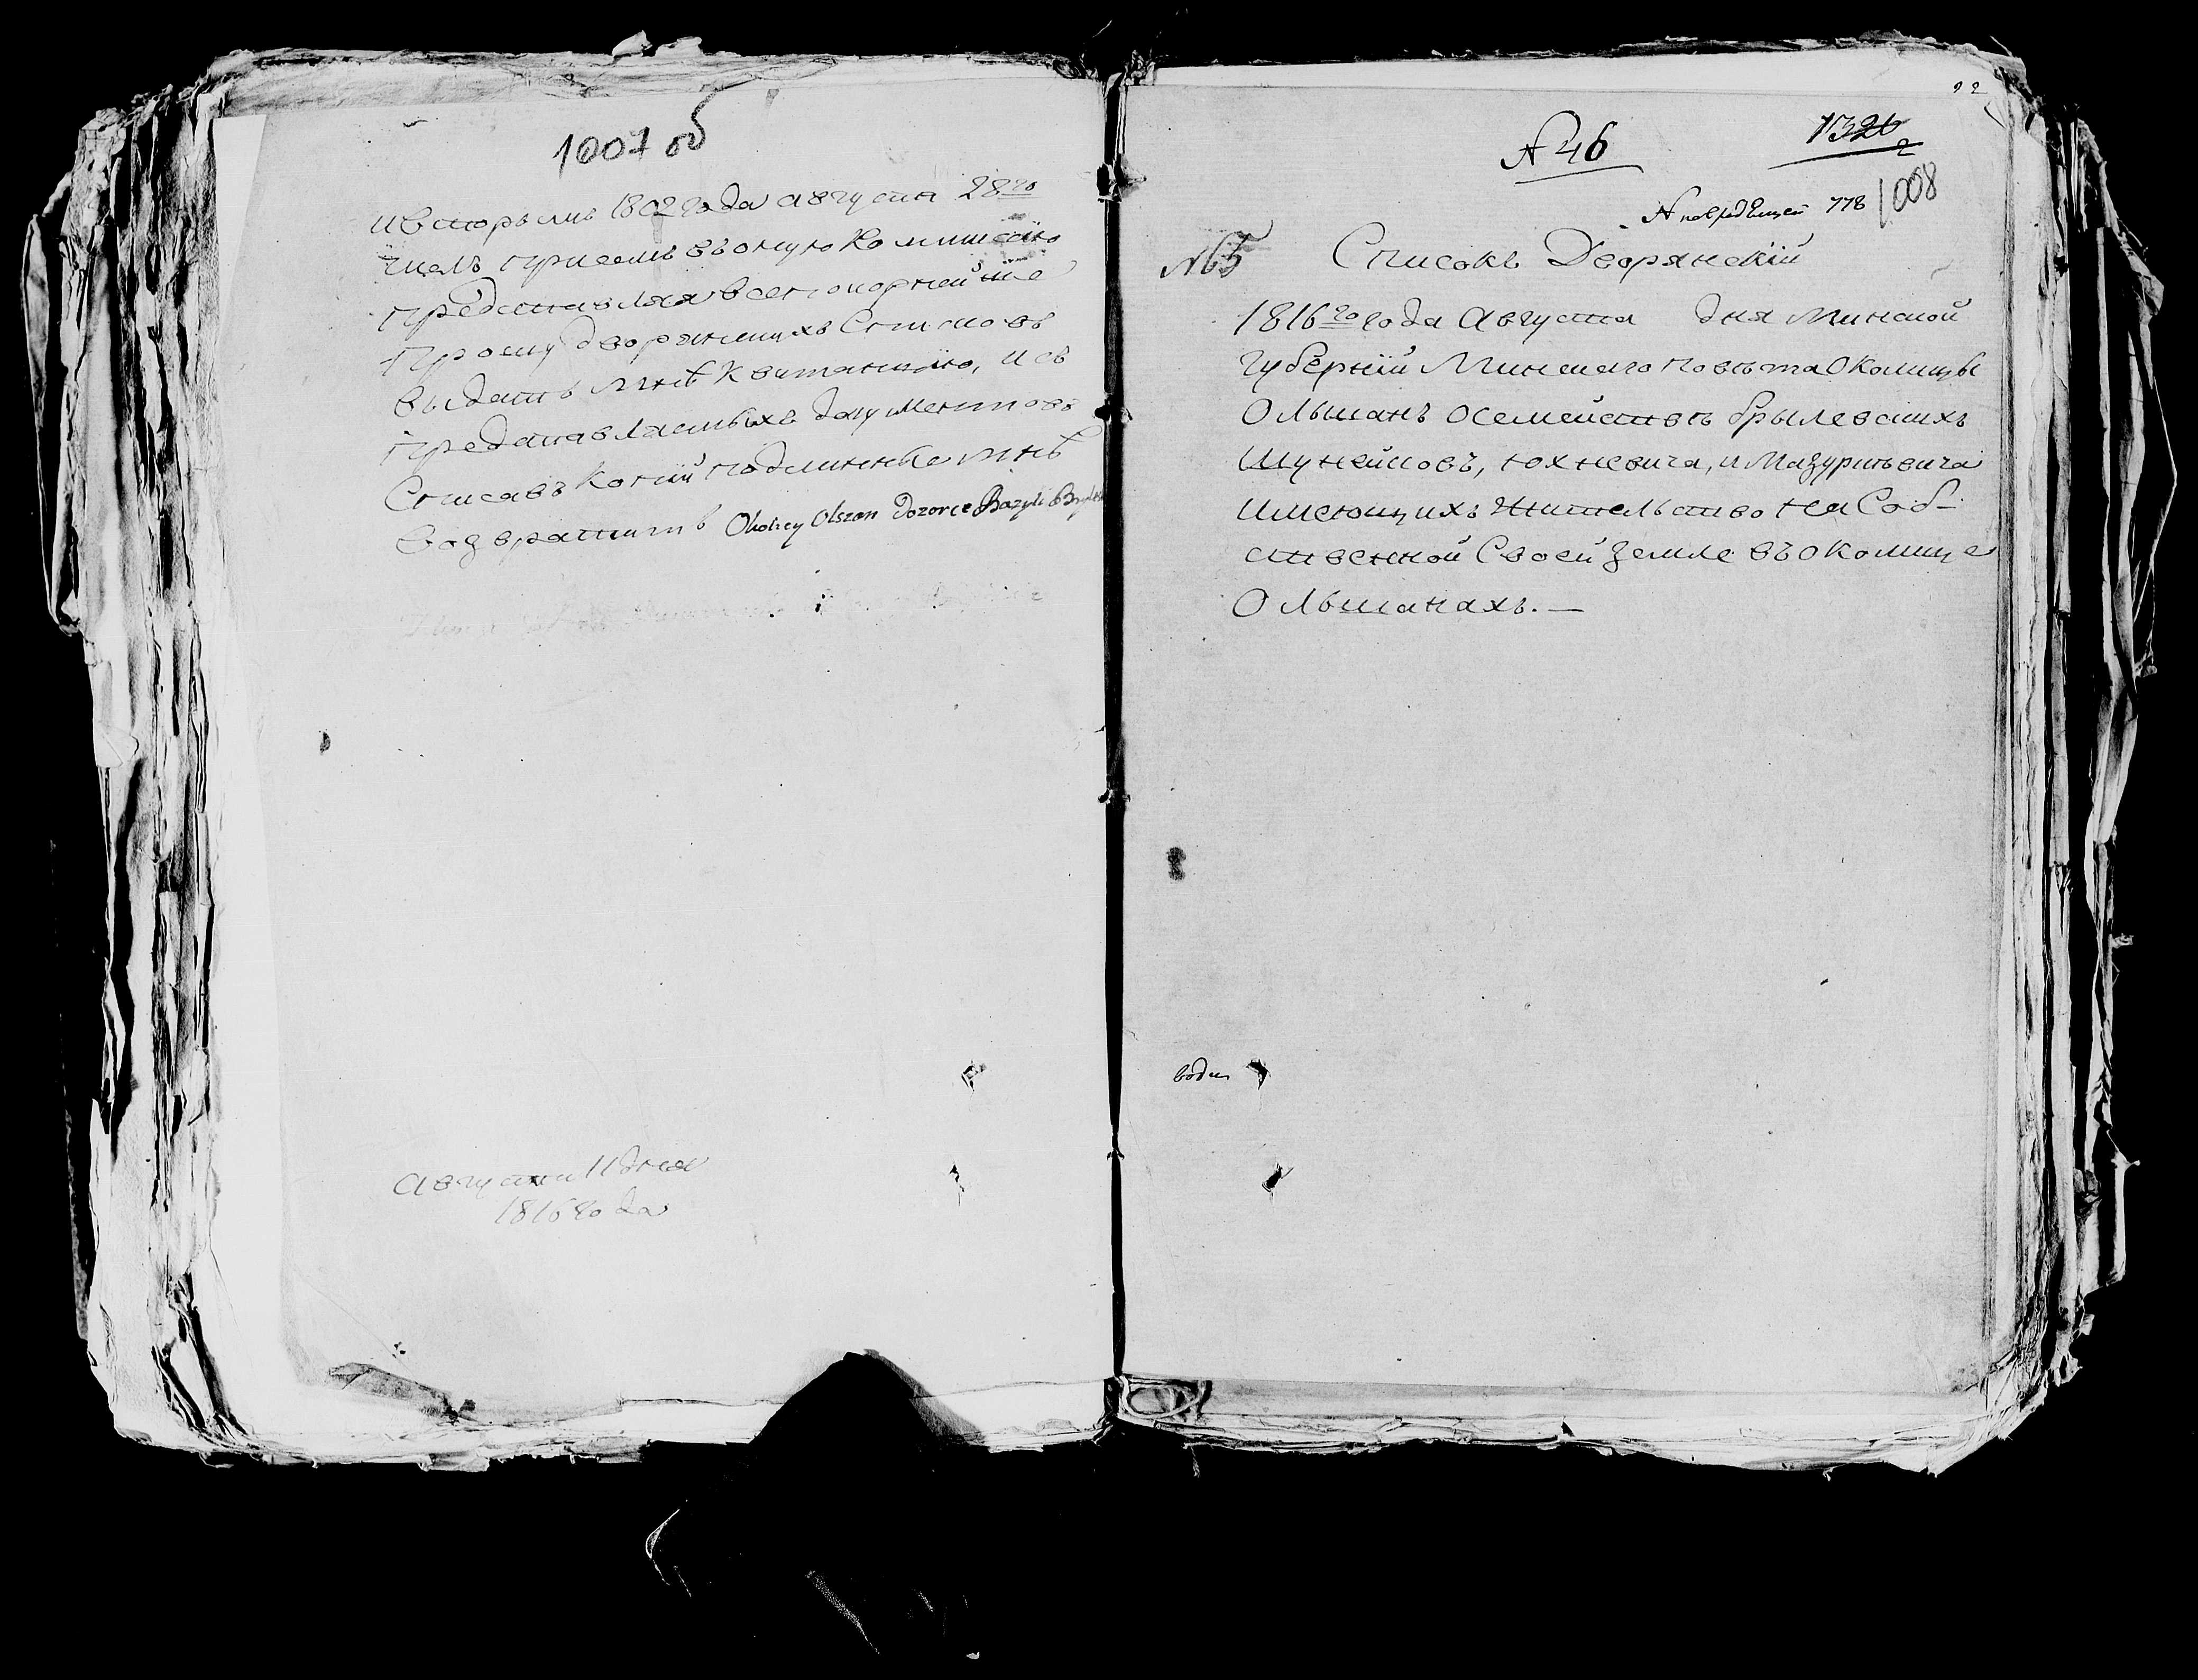 1007 об
и вторымъ 1802 года августа 28го
числъ приемъ въ оную Коммисію
представляя всепокорнейше
прошу дворянскихъ Списковъ
выдать мнѣ Квитанцію, и съ
представляемыхъ документовъ
Списавъ Копіи подлинные мнѣ
возвратить Okolicy Olszan Dozorce Bazyli
августа 11 дня
1816 года
22
№ 46
1326
2
№ 778
1008
№ 65
Списокъ Дворянскій
1816го года Августа дня Минской
Губерніи Минскаго повѣта Околицы
Ольшанъ о семействѣ Брылевскихъ
Шунейковъ, Юхневича, и Мазуркевича
имеющихъ жительство на Соб-
ственной Своей Земле въ околице
Ольшанахъ. —
води